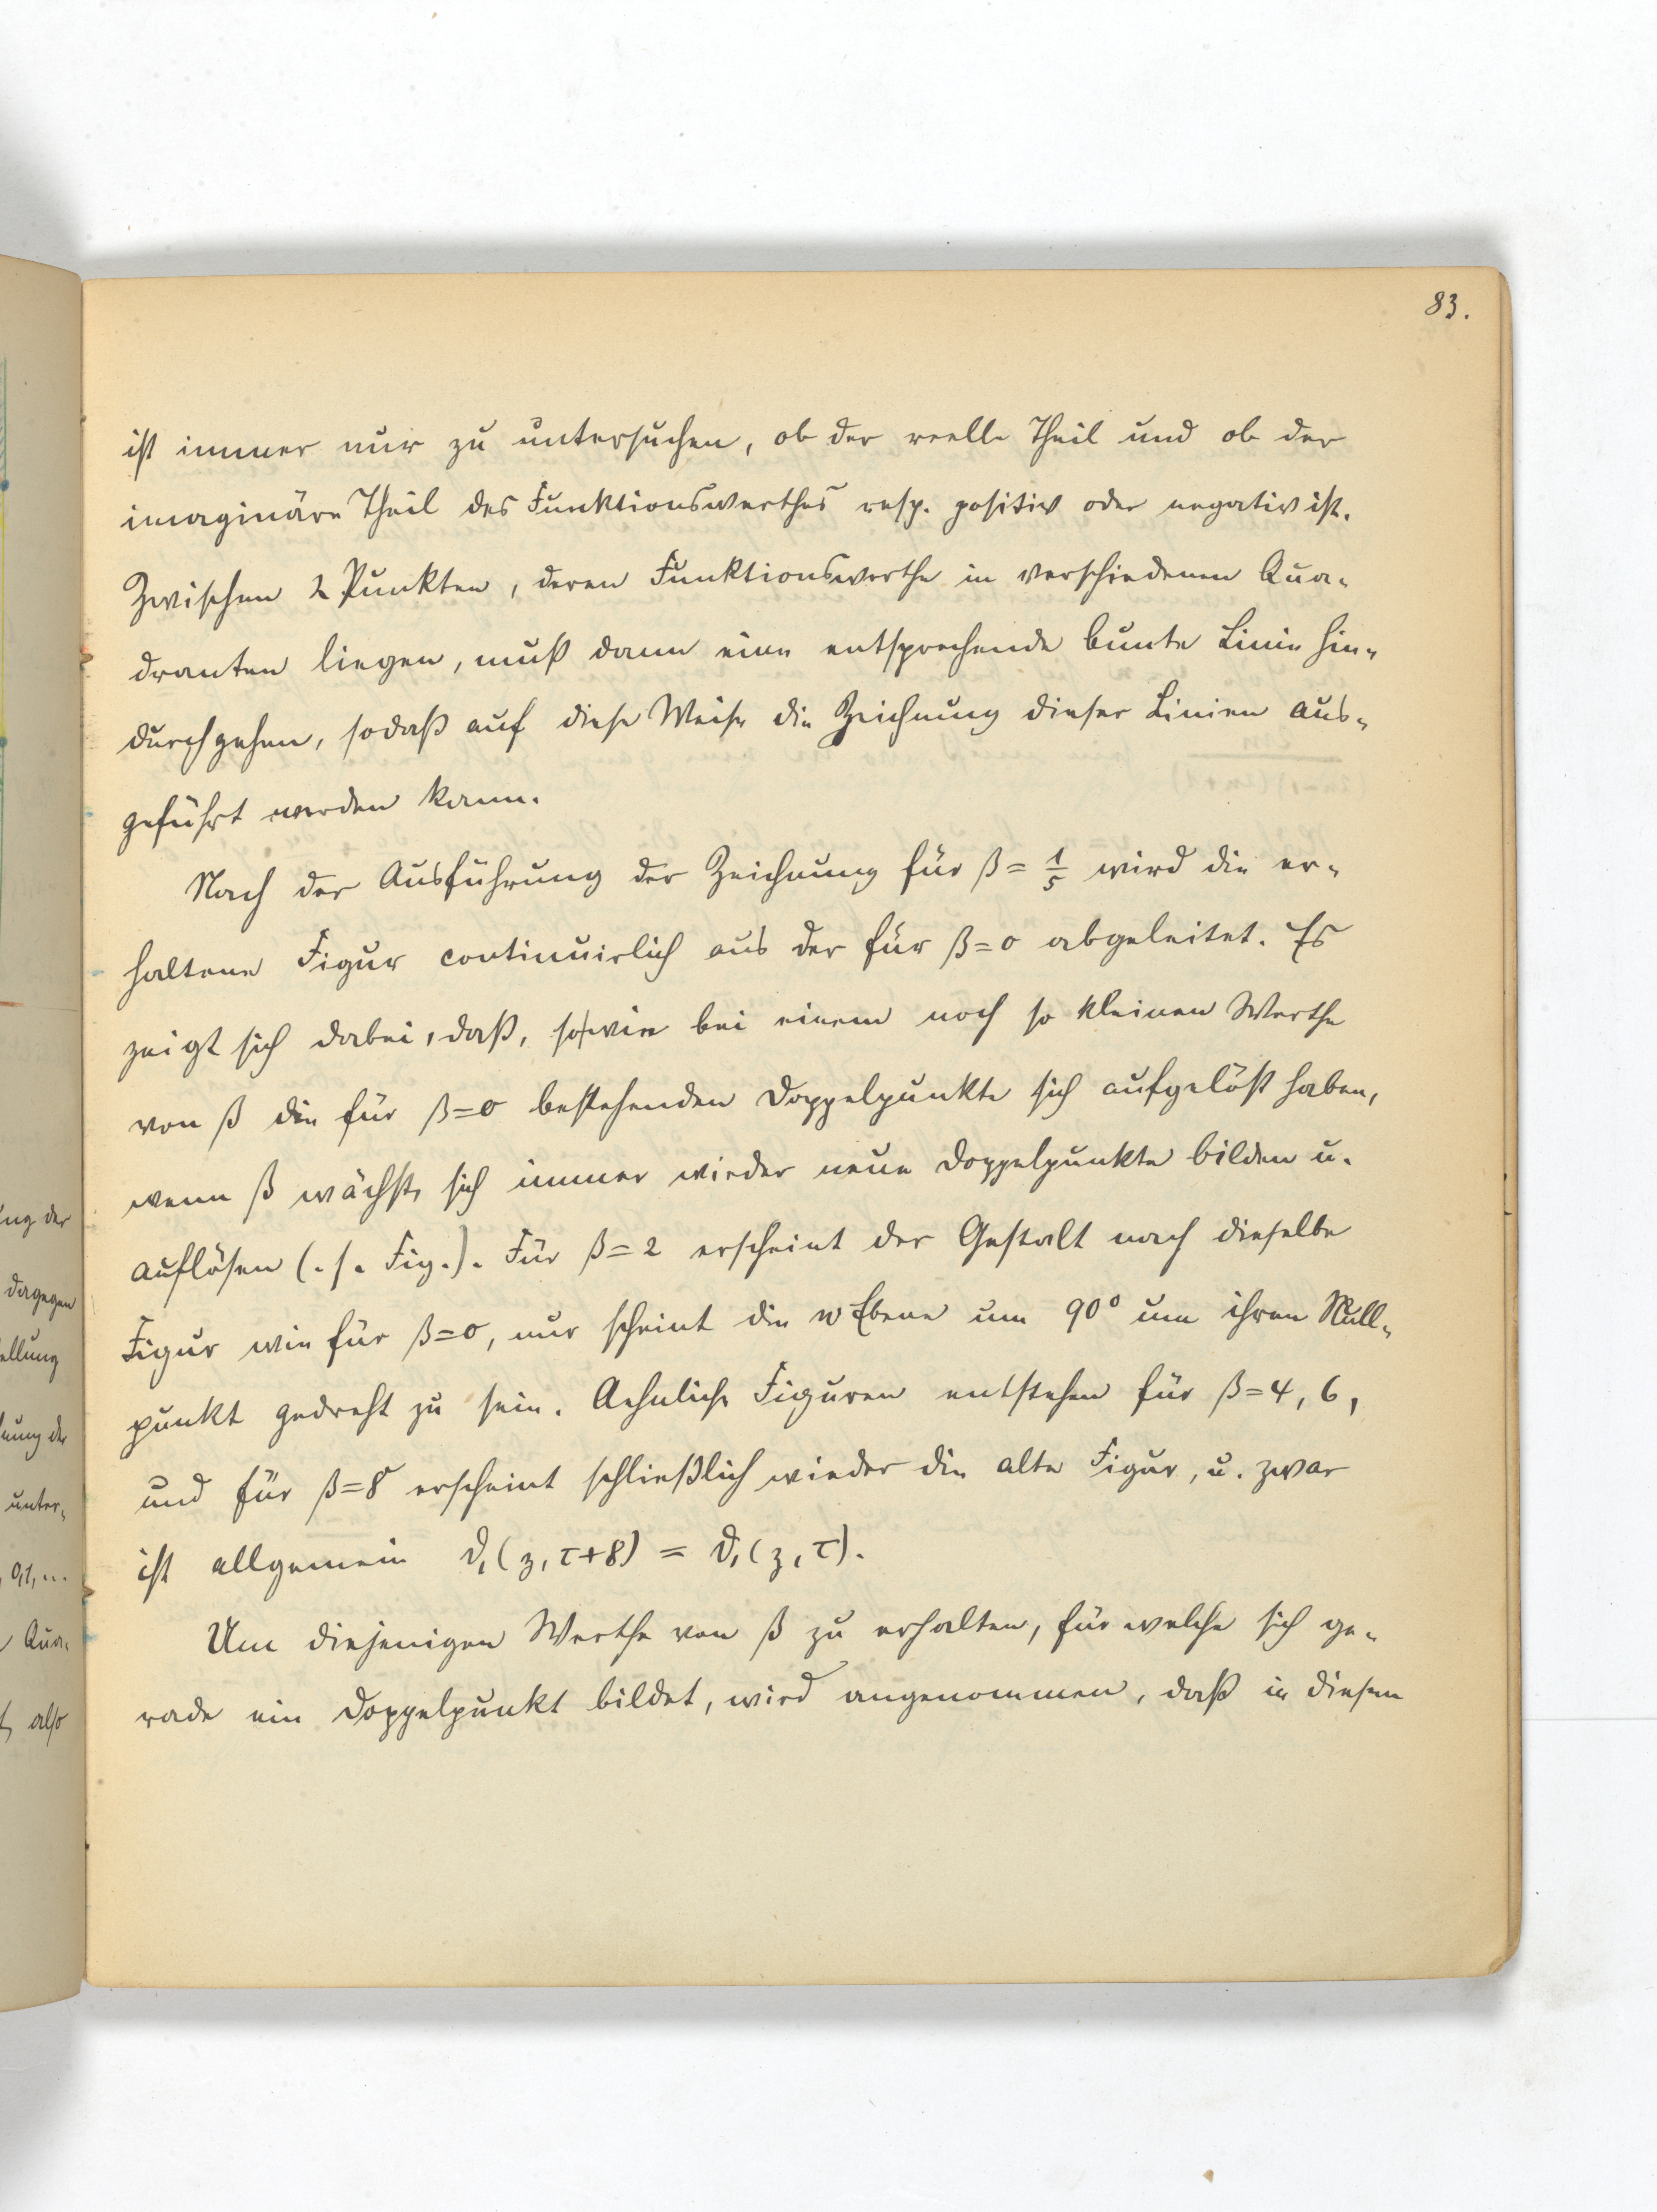 83.
ist immer nur zu untersuchen, ob der reelle Theil und ob der
imaginäre Theil des Funktionswerthes resp. positiv oder negativ ist.
Zwischen 2 Punkten, deren Funktionswerthe in verschiedenen Qua-
dranten liegen, muß dann eine entsprechende bunte Linie hin-
durchgehen, sodaß auf diese Weise die Zeichnung dieser Linien aus-
geführt werden kann.
Nach der Ausführung der Zeichnung für β = 1/5 wird die er-
haltene Figur continuirlich aus der für β=0 abgeleitet. Es
zeigt sich dabei, daß, sowie bei einem noch so kleinen Werthe
von β die für β=0 bestehenden Doppelpunkte sich aufgelöst haben,
wenn β wächst, sich immer wieder neue Doppelpunkte bilden u.
auflösen (. s. Fig.). Für β=2 erscheint der Gestalt nach dieselbe
Figur wie für β=0, nur scheint die w Ebene um 90° um ihren Null-
punkt gedreht zu sein. Aehnliche Figuren entstehen für β=4, 6,
und für β=8 erscheint schließlich wieder die alte Figur, u. zwar
ist allgemein ϑ₁(z, τ+8) = ϑ₁(z, τ).
Um diejenigen Werthe von β zu erhalten, für welche sich ge-
rade ein Doppelpunkt bildet, wird angenommen, daß in diesem
ung der
dagegen
ellung
nung der
unter-
0,1, ...
Qua-
also